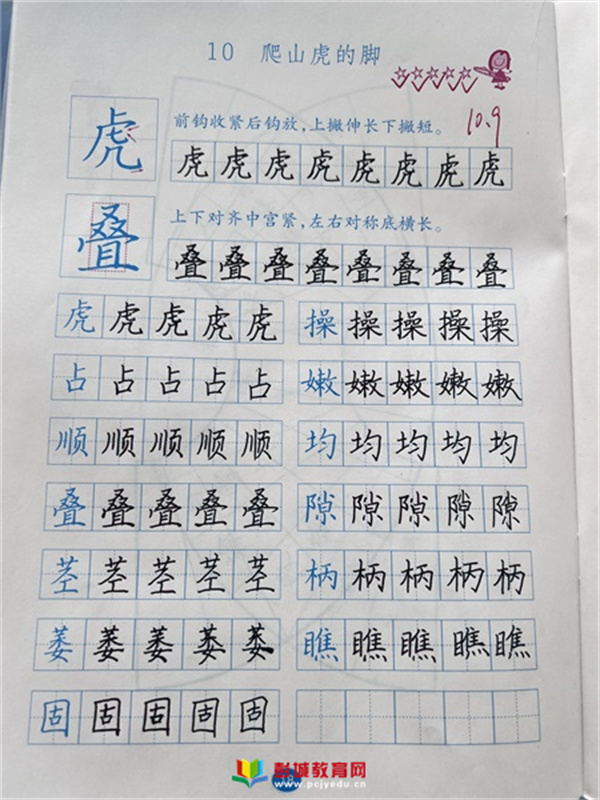 10 爬山虎的脚
10.9
虎 前钩收紧后钩放，上撇伸长下撇短。
虎虎虎虎虎虎虎虎
叠 上下对齐中宫紧，左右对称底横长。
叠叠叠叠叠叠叠叠
虎虎虎虎虎 操操操操操
占占占占占 嫩嫩嫩嫩嫩
顺顺顺顺顺 均均均均均
叠叠叠叠叠 隙隙隙隙隙
茎茎茎茎茎 柄柄柄柄柄
萎萎萎萎萎 瞧瞧瞧瞧瞧
固固固固固
18
彭城教育网
www.pcjyedu.cn